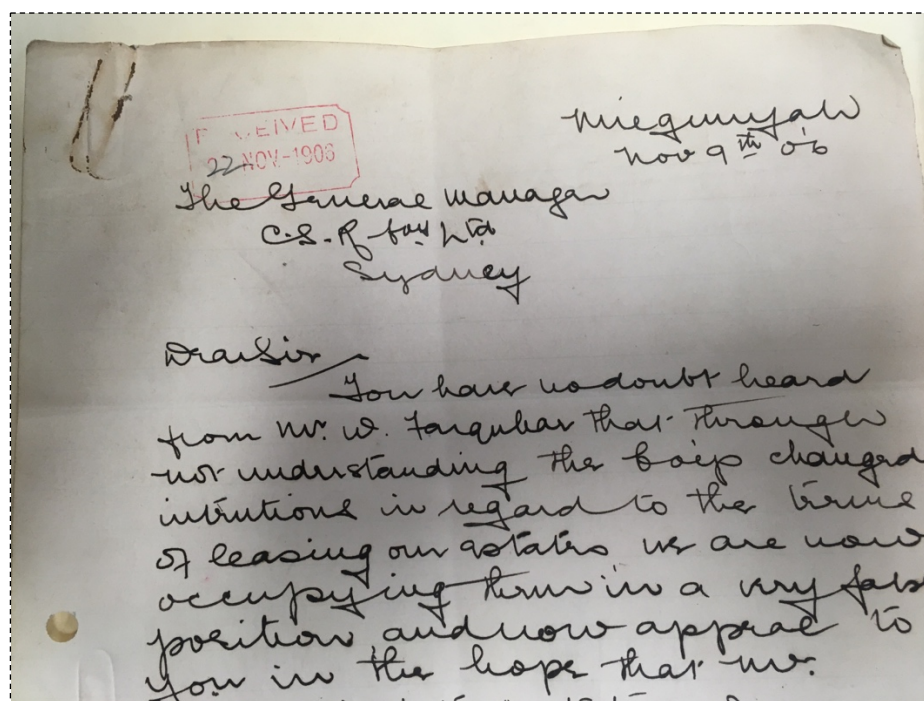 RECEIVED
22 NOV-1906
Miegunyah
Nov 9th 06
The General Manager
C.S.R Coy Ltd
Sydney
Dear Sir
You have no doubt heard
from Mr. W. Farquhar that through
not understanding the Coy's changed
intentions in regard to the terms
of leasing our estates we are now
occupying them in a very false
position and now appeal to
you in the hope that Mr.